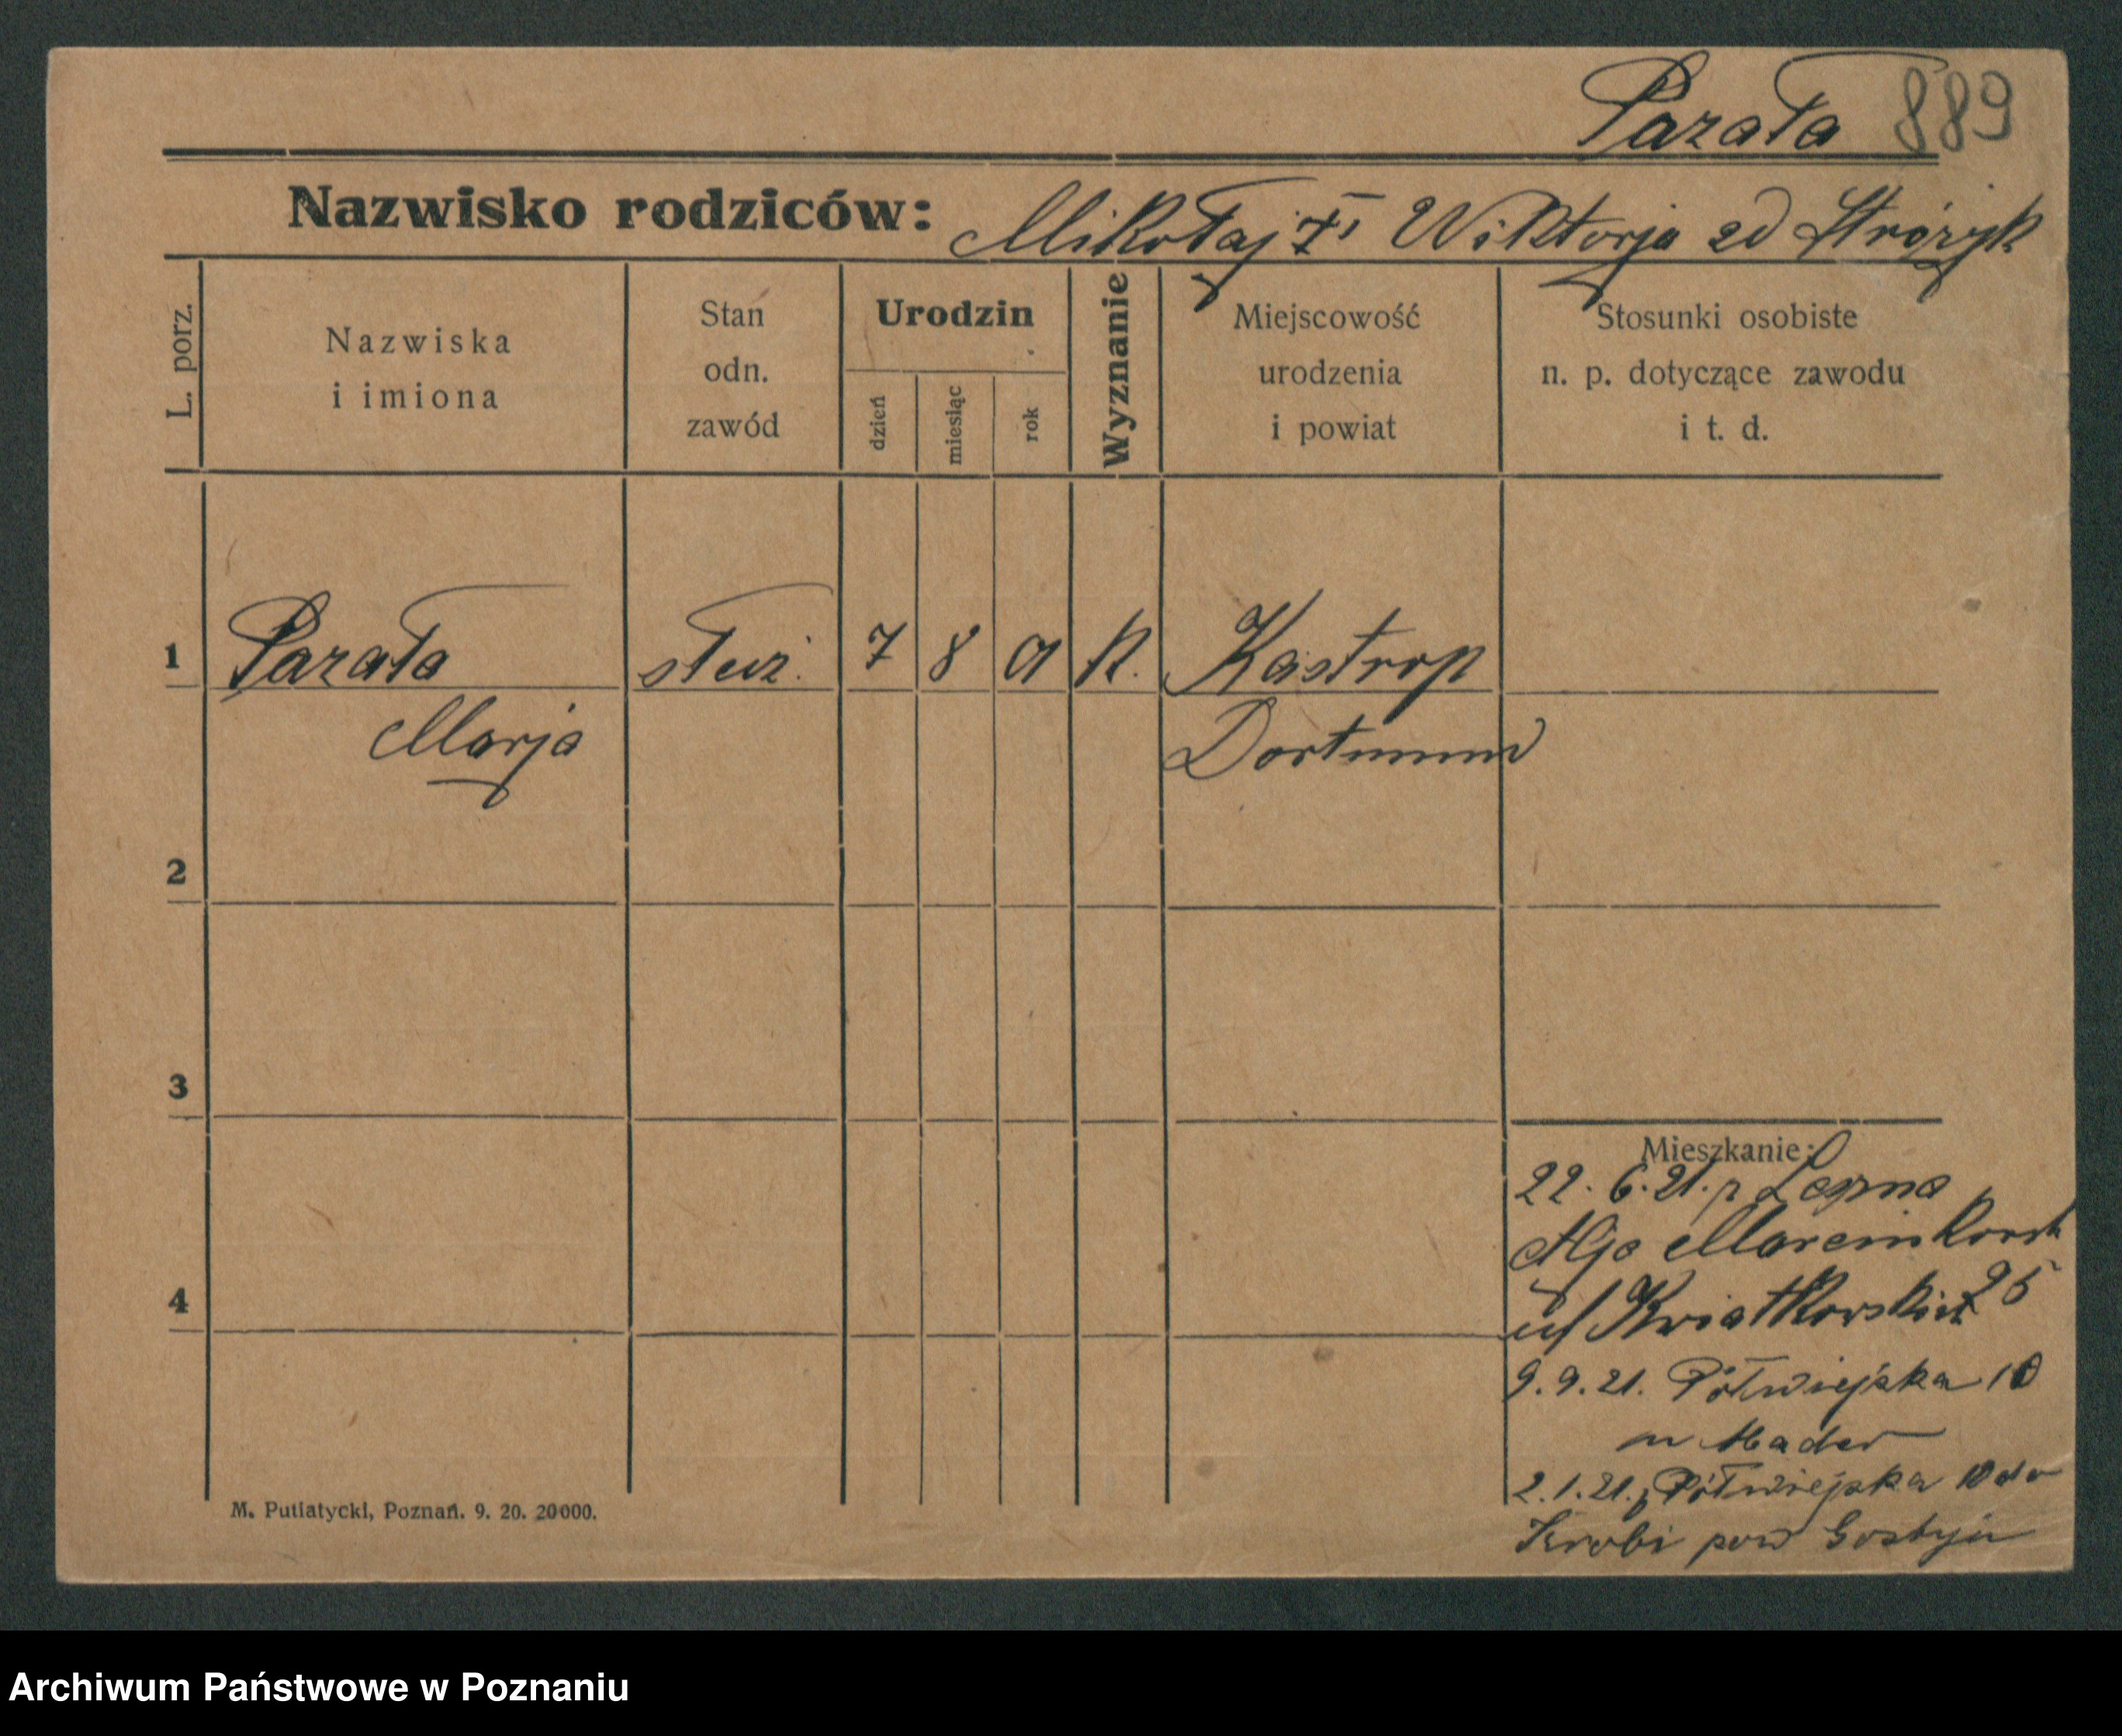 Parała 889
Nazwisko rodziców: Mikołaj i Wiktorja zd Stróżyk
L. porz.
Nazwiska
i imiona
Stan
odn.
zawód
Urodzin
dzień
miesiąc
rok
Wyznanie
Miejscowość
urodzenia
i powiat
Stosunki osobiste
n. p. dotyczące zawodu
i t. d.
1 Parała służ. 7 8 01 k. Kastrop
Marja Dortmund
2
3
4
Mieszkanie:
22. 6. 21. z
Alje Marcinkowsk
25
u/ Kwiatkowskich
9. 9. 21. Półwiejska 10
Mader
2. 1. 21. z Półwiejska 10 do
Krobi pow Gostyń
M. Putiatycki, Poznań. 9. 20. 20000.
Archiwum Państwowe w Poznaniu